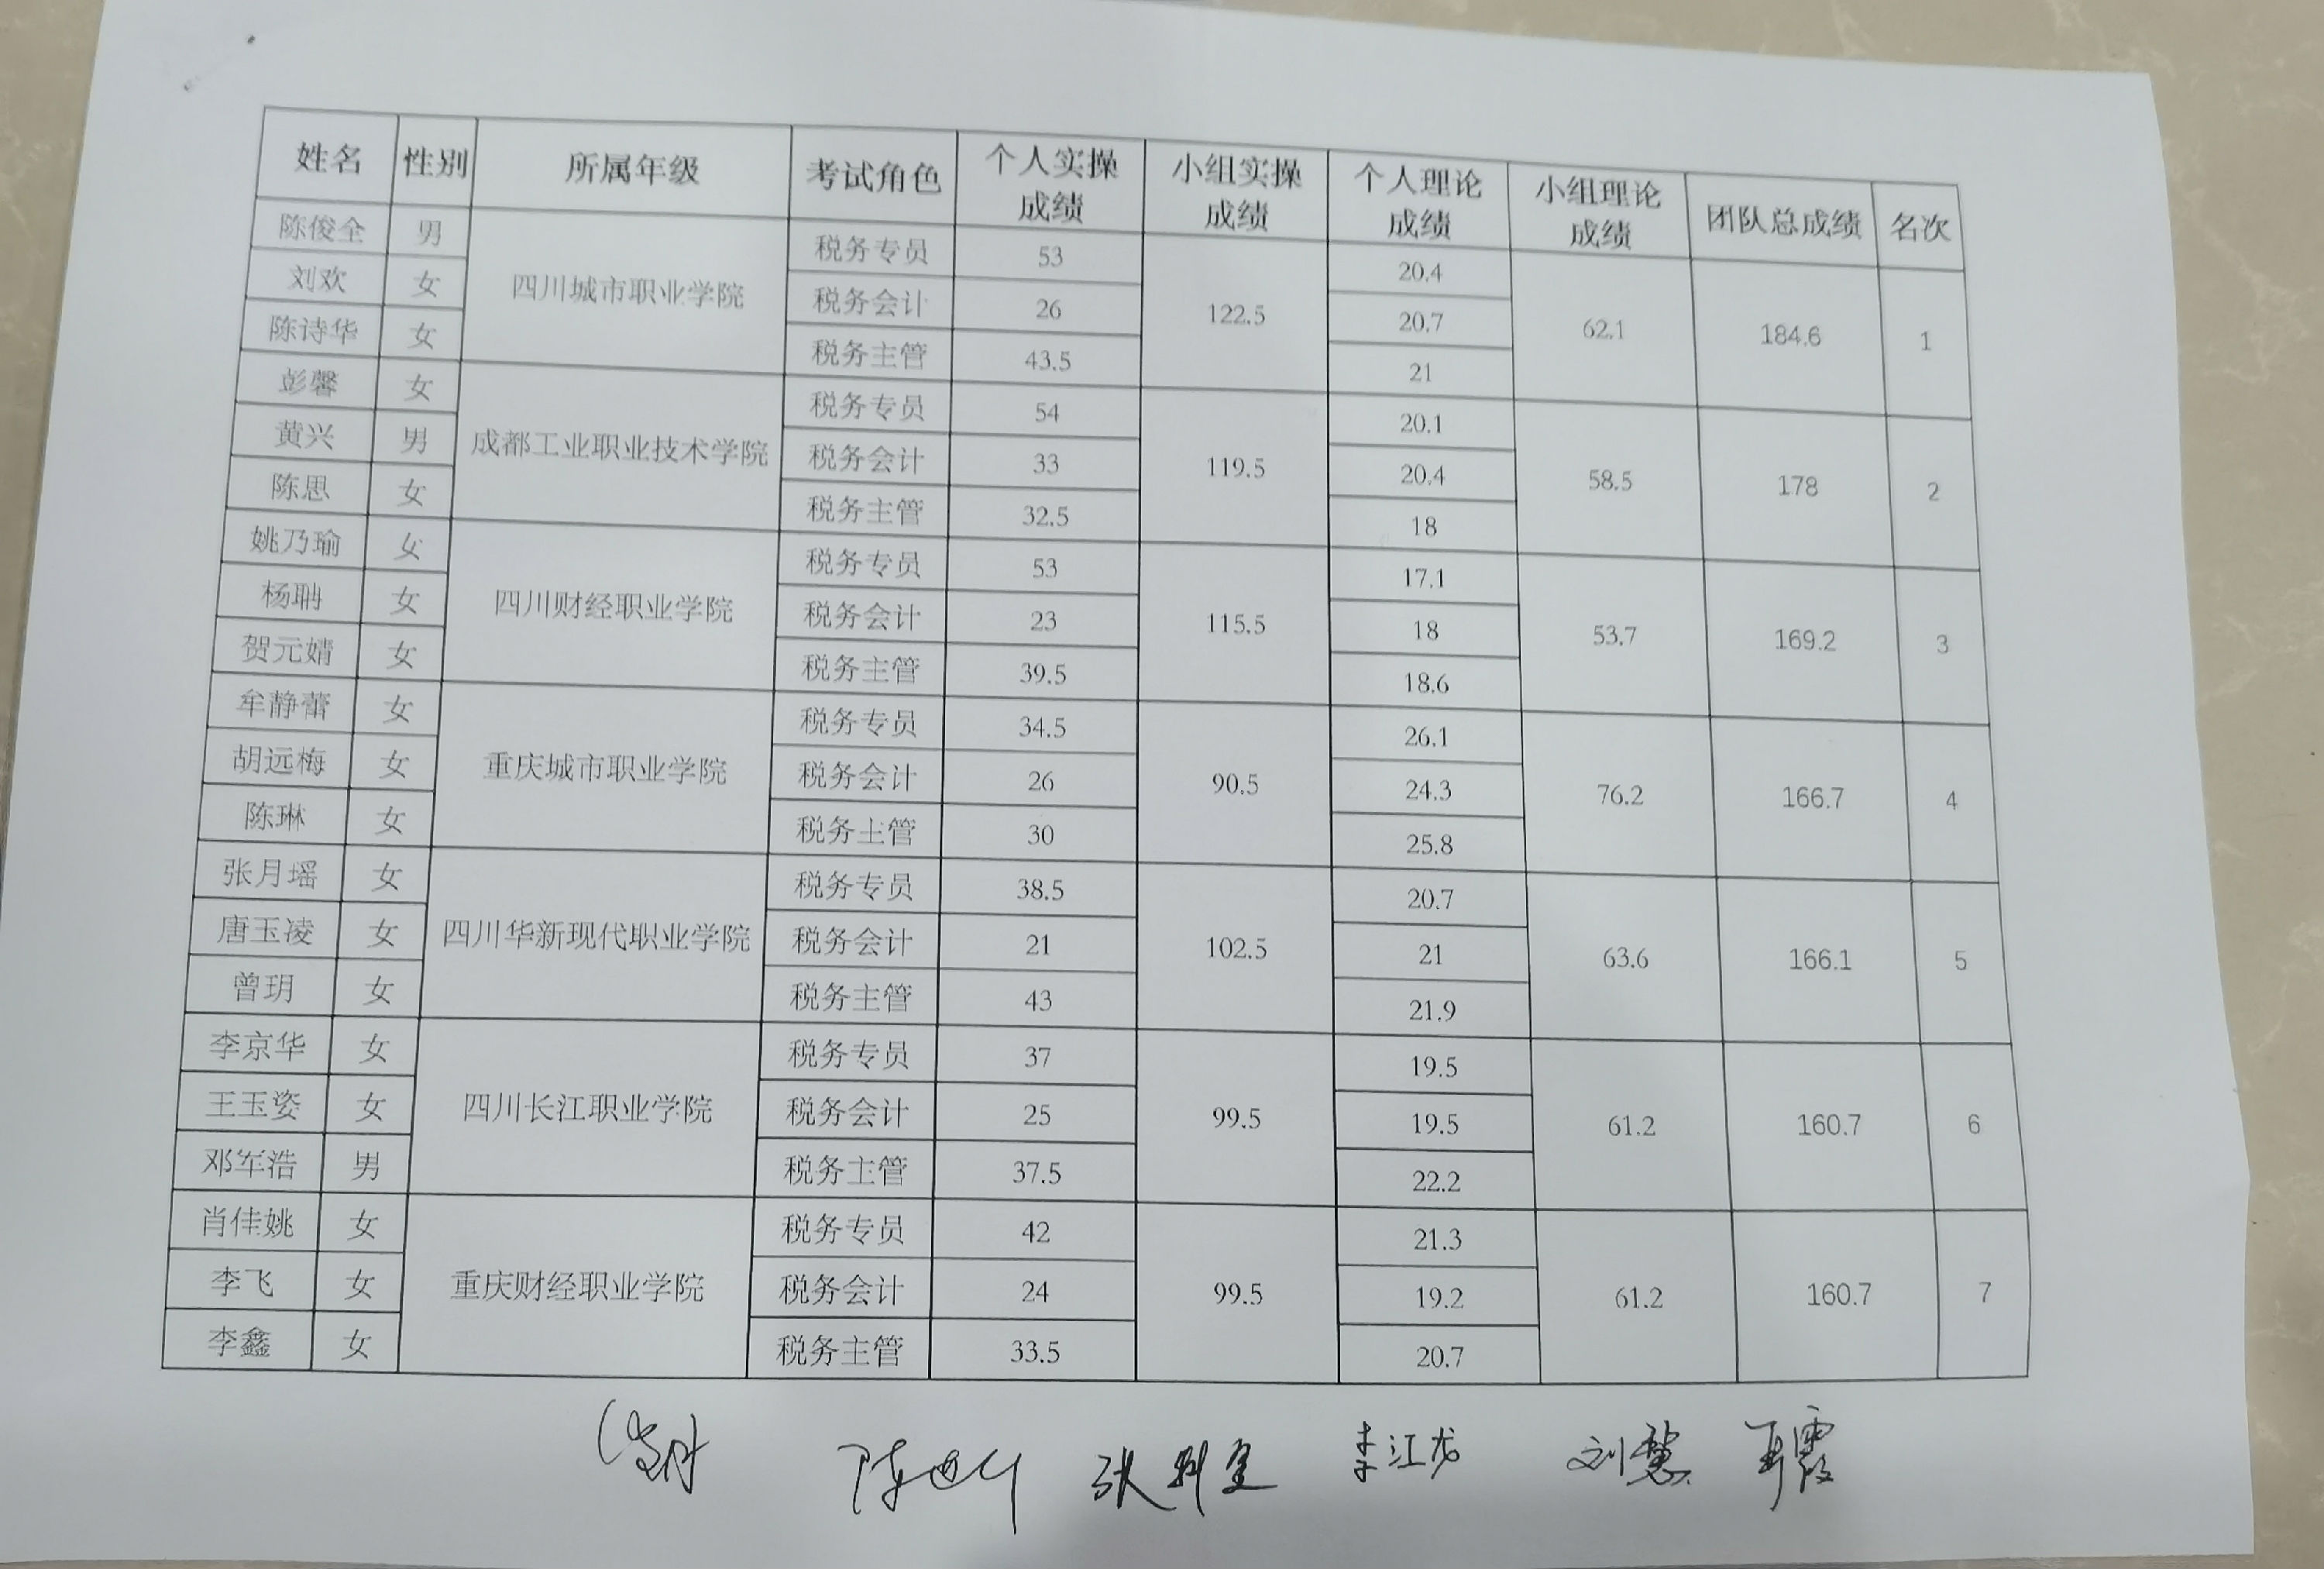 姓名 性别 所属年级 考试角色 个人实操成绩 小组实操成绩 个人理论成绩 小组理论成绩 团队总成绩 名次
陈俊全 男 四川城市职业学院 税务专员 53 122.5 20.4 62.1 184.6 1
刘欢 女 税务会计 26 20.7
陈诗华 女 税务主管 43.5 21
彭馨 女 成都工业职业技术学院 税务专员 54 119.5 20.1 58.5 178 2
黄兴 男 税务会计 33 20.4
陈思 女 税务主管 32.5 18
姚乃瑜 女 四川财经职业学院 税务专员 53 115.5 17.1 53.7 169.2 3
杨聃 女 税务会计 23 18
贺元婧 女 税务主管 39.5 18.6
牟静蕾 女 重庆城市职业学院 税务专员 34.5 90.5 26.1 76.2 166.7 4
胡远梅 女 税务会计 26 24.3
陈琳 女 税务主管 30 25.8
张月瑶 女 四川华新现代职业学院 税务专员 38.5 102.5 20.7 63.6 166.1 5
唐玉凌 女 税务会计 21 21
曾玥 女 税务主管 43 21.9
李京华 女 四川长江职业学院 税务专员 37 99.5 19.5 61.2 160.7 6
王玉姿 女 税务会计 25 19.5
邓军浩 男 税务主管 37.5 22.2
肖佳姚 女 重庆财经职业学院 税务专员 42 99.5 21.3 61.2 160.7 7
李飞 女 税务会计 24 19.2
李鑫 女 税务主管 33.5 20.7
李江龙 刘慧